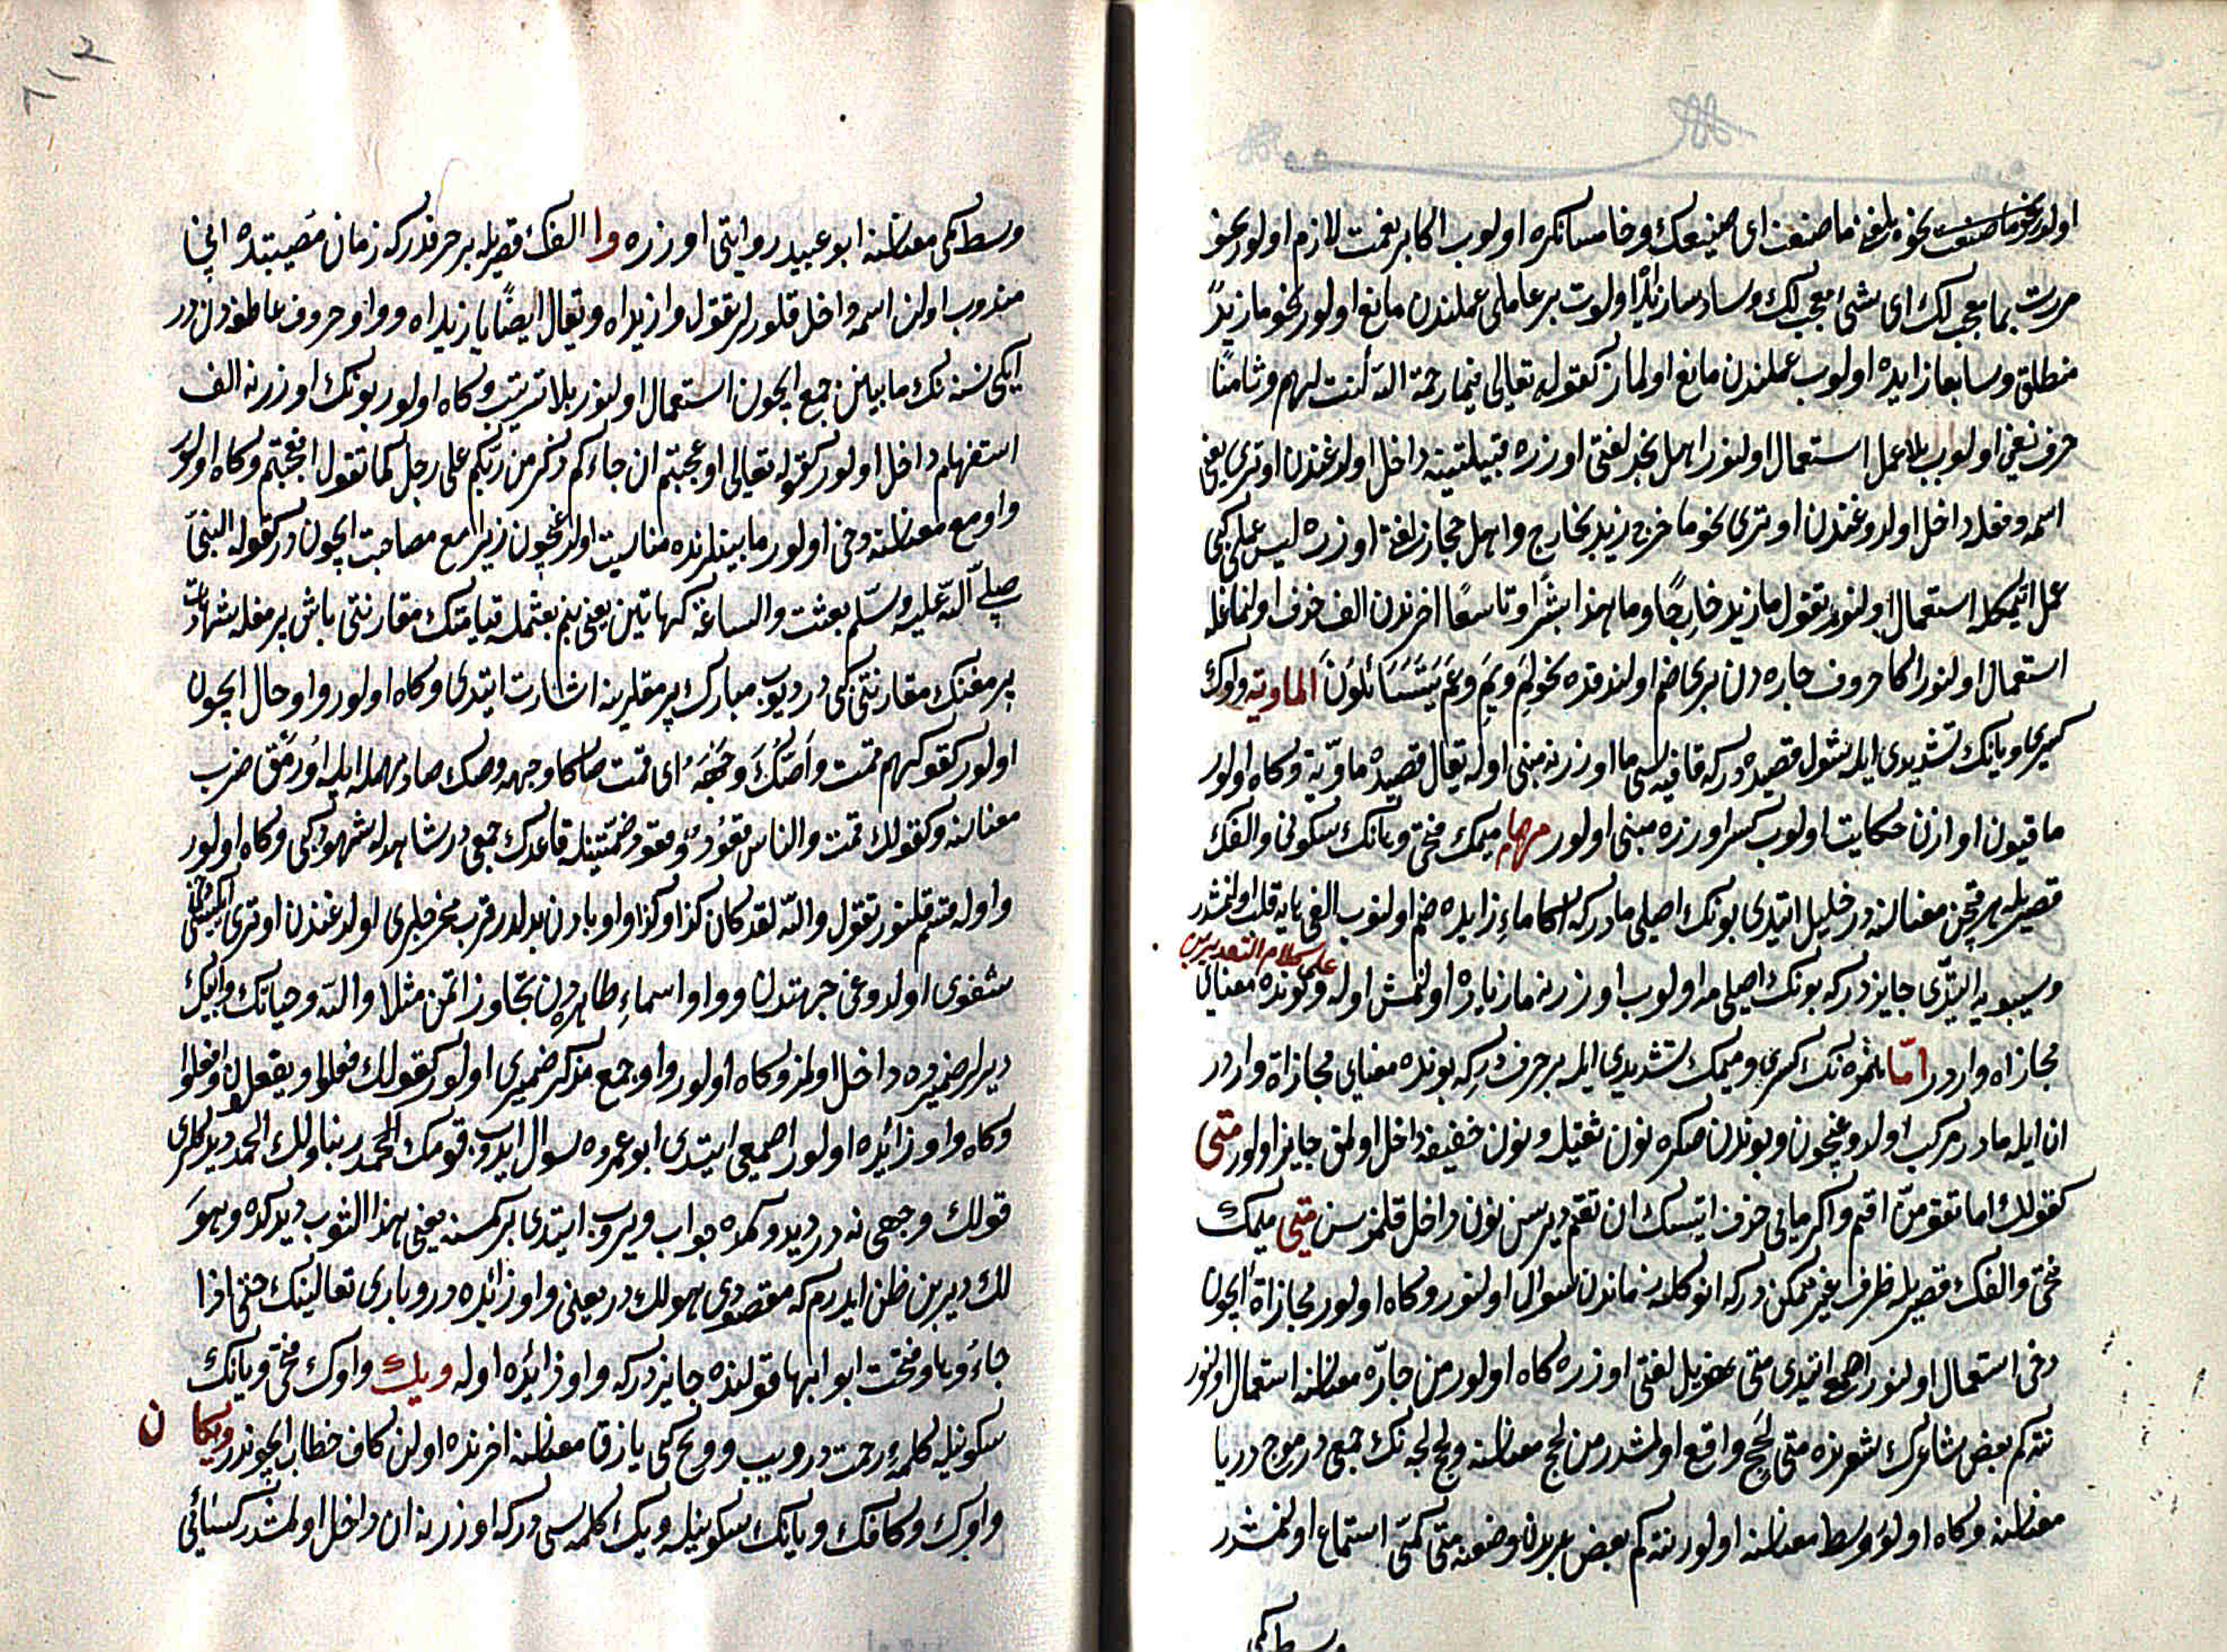 اولور نحو ما صنعت نحوه بلغنى ما صنعت اى صنيعك وخامسا نكره اولوب اكا بر نعت لازم اولور نحو
مررت بما معجب لك اى بشئ معجب لك وسادسا زائدا اولوب بر عاملى عملندن مانع اولور نحو انما زيد
منطلق وسابعا زايده اولوب عملندن مانع اولماز كقوله تعالى فبما رحمة الله لنت لهم وثامنا
حرف نفى اولوب بلا عمل استعمال اولنور اهل نجد لغتى اوزره قبيلتينه داخل اولدغندن اوترى يعنى
اسمه وفعله داخل اولدوغندن اوترى نحو ما خرج زيد بخارج واهل حجاز لغتى اوزره ليس عملى كبى
عمل ايتمكله استعمال اولنور تقول ما زيد خارجًا وما هذا بشرًا وتاسعًا اخرندن الف حذف اولنماغله
استعمال اولنور اكا حروف جاره دن برى ضم اولندقده نحو لِمَ وبِمَ وعَمَّ يَتَسَاءَلُونَ الماوية واوك
كسرى ويانك تشديدى ايله شول قصيده دركه قافيه سى ما اوزرنه مبنى اوله يقال قصيدة ماوية وكاه اولور
ماقيون اوازن حكايت اولوب كسر اوزره مبنى اولور مهما ميمك فتحى وهانك سكونى والفك
قصريله هر قچن معناسنه در خليل ايتدى بونك اصلى ما دركه اكا ماء زايده ضم اولنوب الفى هايه قلب اولنمشدر
على كلام التقديرين
وسيبويه ايتدى جايز دركه بونك اصلى مه اولوب اوزرنه ما زياده اولنمش اوله وبونده معناى
مجازاة وارد در امّا همزه نك كسرى وميمك تشديدى ايله بر حرف دركه بونده معناى مجازاة وارد در
ان ايله مادن مركب اولدوغيچون وبوندن صكره نون ثقيله ونون خفيفه داخل اولمق جايز اولور متى
كقولك اما تقومنّ اقم واكر مايى حذف ايتسك ان تقم ديرسن نون داخل قلمزسن متى ميمك
فتحى والفك قصريله ظرف غير متمكن دركه انوكله زماندن سوال اولنور وكاه اولور مجازاة ايچون
دخى استعمال اولنور اصمعى ايتدى متى هذيل لغتى اوزره كاه اولور من جارّه معناسنه استعمال اولنور
نته كم بعض شاعرك شعرنده متى لُجَجٍ واقع اولمشدر من لجج معناسنه ولجج لجه نك جمعى در موج دريا
معناسنه وكاه اولور وسط معناسنه اولور نته كم بعض عربدن وضعته متى كمّى استماع اولنمشدر
وسط كمى
وسط كمى معناسنه ابو عبيد روايتى اوزره وا الفك قصريله بر حرفدر كه زمان مصيبتده انى
مندوب اولن اسمه داخل قلورلر تقول وا زيداه ويقال ايضًا يا زيداه وواو حروف عاطفه دن در
ايكى نسنه نك مابينن جمع ايچون استعمال اولنور بلا ترتيب وكاه اولور بونك اوزرنه الف
استفهام داخل اولور كقوله تعالى اوعجبتم ان جاءكم ذكر من ربكم على رجل كما تقول افعجبتم وكاه اولور
واو مع معناسنه دخى اولور مابينلرنده مناسبت اولدغيچون زيرا مع مصاحبت ايچون در كقوله النبى
صلى الله عليه وسلم بعثت والساعة كهاتين يعنى بنم بعثتمله قيامتك مقارنتى باش پرمغله شهادت
پرمغنك مقارنتى كبى در ديوب مبارك پرمقلرينه اشارت ايتدى وكاه اولور واو حال ايچون
اولور كقولهم قمت واصُكُّ وجْهَهُ اى قمت صاكا وجهه وصك صاد مهمله ايله اورمق ضرب
معناسنه وكقولك قمت والناس قعود وقعود ضمتينله قاعدك جمعى در شاهد له شهود كبى وكاه اولور
واوله قسم قلنور تقول والله لقد كان كذا وكذا واو بادن بدلدر قرب مخرجلرى اولدغندن اوترى ايكيسى دخى
شفوى اولدوغى جهتدن وواو اسماء ظاهردن تجاوز اتمز مثلا والله وحياتك وابيك
ديرلر ضميره داخل اولمز وكاه اولور واو جمع مذكر ضميرى اولور كقولك فعلوا ويفعلون وافعلوا
وكاه واو زائده اولور اصمعى ايتدى ابو عمروه سوال ايدوب قومك الحمد ربنا ولك الحمد ديدكلرى
قولك وجهى نه در ديدوكمده جواب ويروب ايتدى بر كمسنه يعنى هذا الثوب ديدكده وهو
لك دير بن ظن ايدرم كه مقصودى هو لك در يعنى واو زائده در وبارى تعالينك حتى اذا
جاءوها وفتحت ابوابها قولنده جايز دركه واو زائده اوله ويك واوك فتحى ويانك
سكونيله كلمهٔ رحمت در ويب وويح كبى يازقا معناسنه اخرنده اولن كاف خطاب ايچوندر ويكان
واوك وكافك ويانك سكونيله ويك كلمه سى دركه اوزرنه ان داخل اولمشدر كسائى